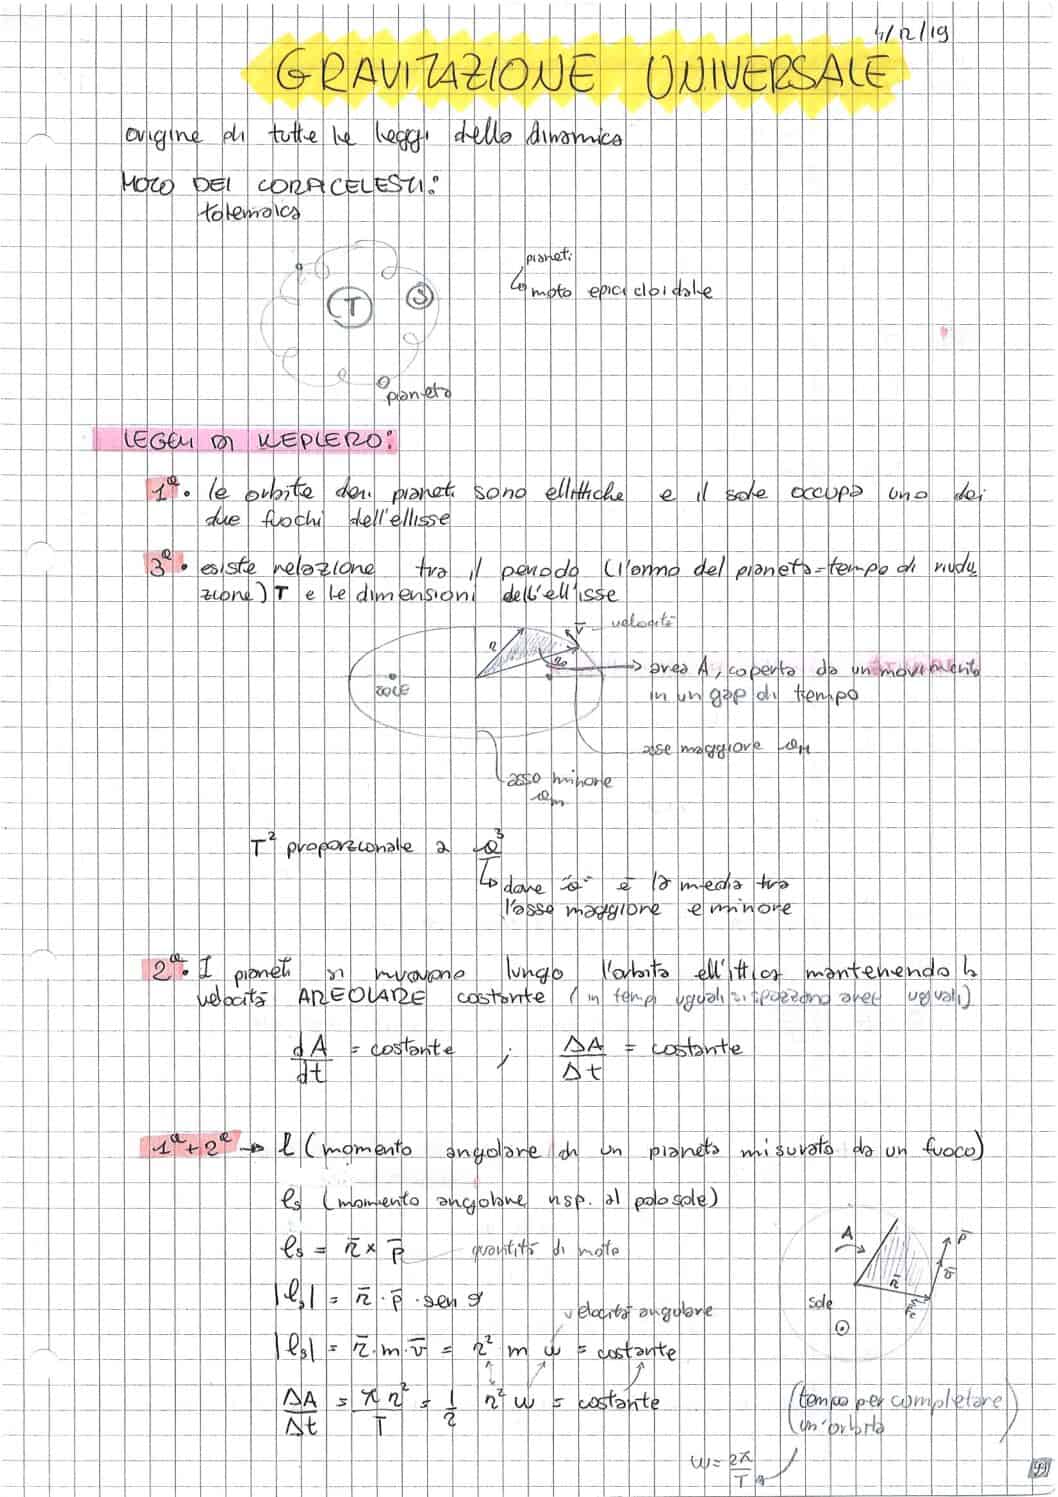 4/12/19
GRAVITAZIONE UNIVERSALE
origine di tutte le leggi della dinamica
MOTO DEI CORPI CELESTI:
tolemaica
pianeti
↳ moto epicicloidale
T
S
pianeta
LEGGI DI KEPLERO:
1ª. le orbite dei pianeti sono ellittiche e il sole occupa uno dei
due fuochi dell'ellisse
3ª. esiste relazione tra il periodo (l'anno del pianeta=tempo di rivolu
zione) T e le dimensioni dell'ellisse
v̄ velocità
r
SOLE
→ area A, coperta da un movimento
in un gap di tempo
asse maggiore aM
asse minore
am
T² proporzionale a a³
↳ dove "a" è la media tra
l'asse maggiore e minore
2ª. I pianeti si muovono lungo l'orbita ellittica mantenendo la
velocità AREOLARE costante (in tempi uguali si spazzano aree uguali)
dA/dt = costante ; ΔA/Δt = costante
1ª+2ª → l (momento angolare di un pianeta misurato da un fuoco)
ls (momento angolare risp. al polo sole)
ls = r̄ x p̄ quantità di moto
|ls| = r̄ · p̄ · sen φ
velocità angolare
|ls| = r̄·m·v̄ = r² m ω = costante
ΔA/Δt = πr²/T = 1/2 r² ω = costante
A
p̄
v̄
r̄
Sole
(tempo per completare
un'orbita)
ω = 2π/T